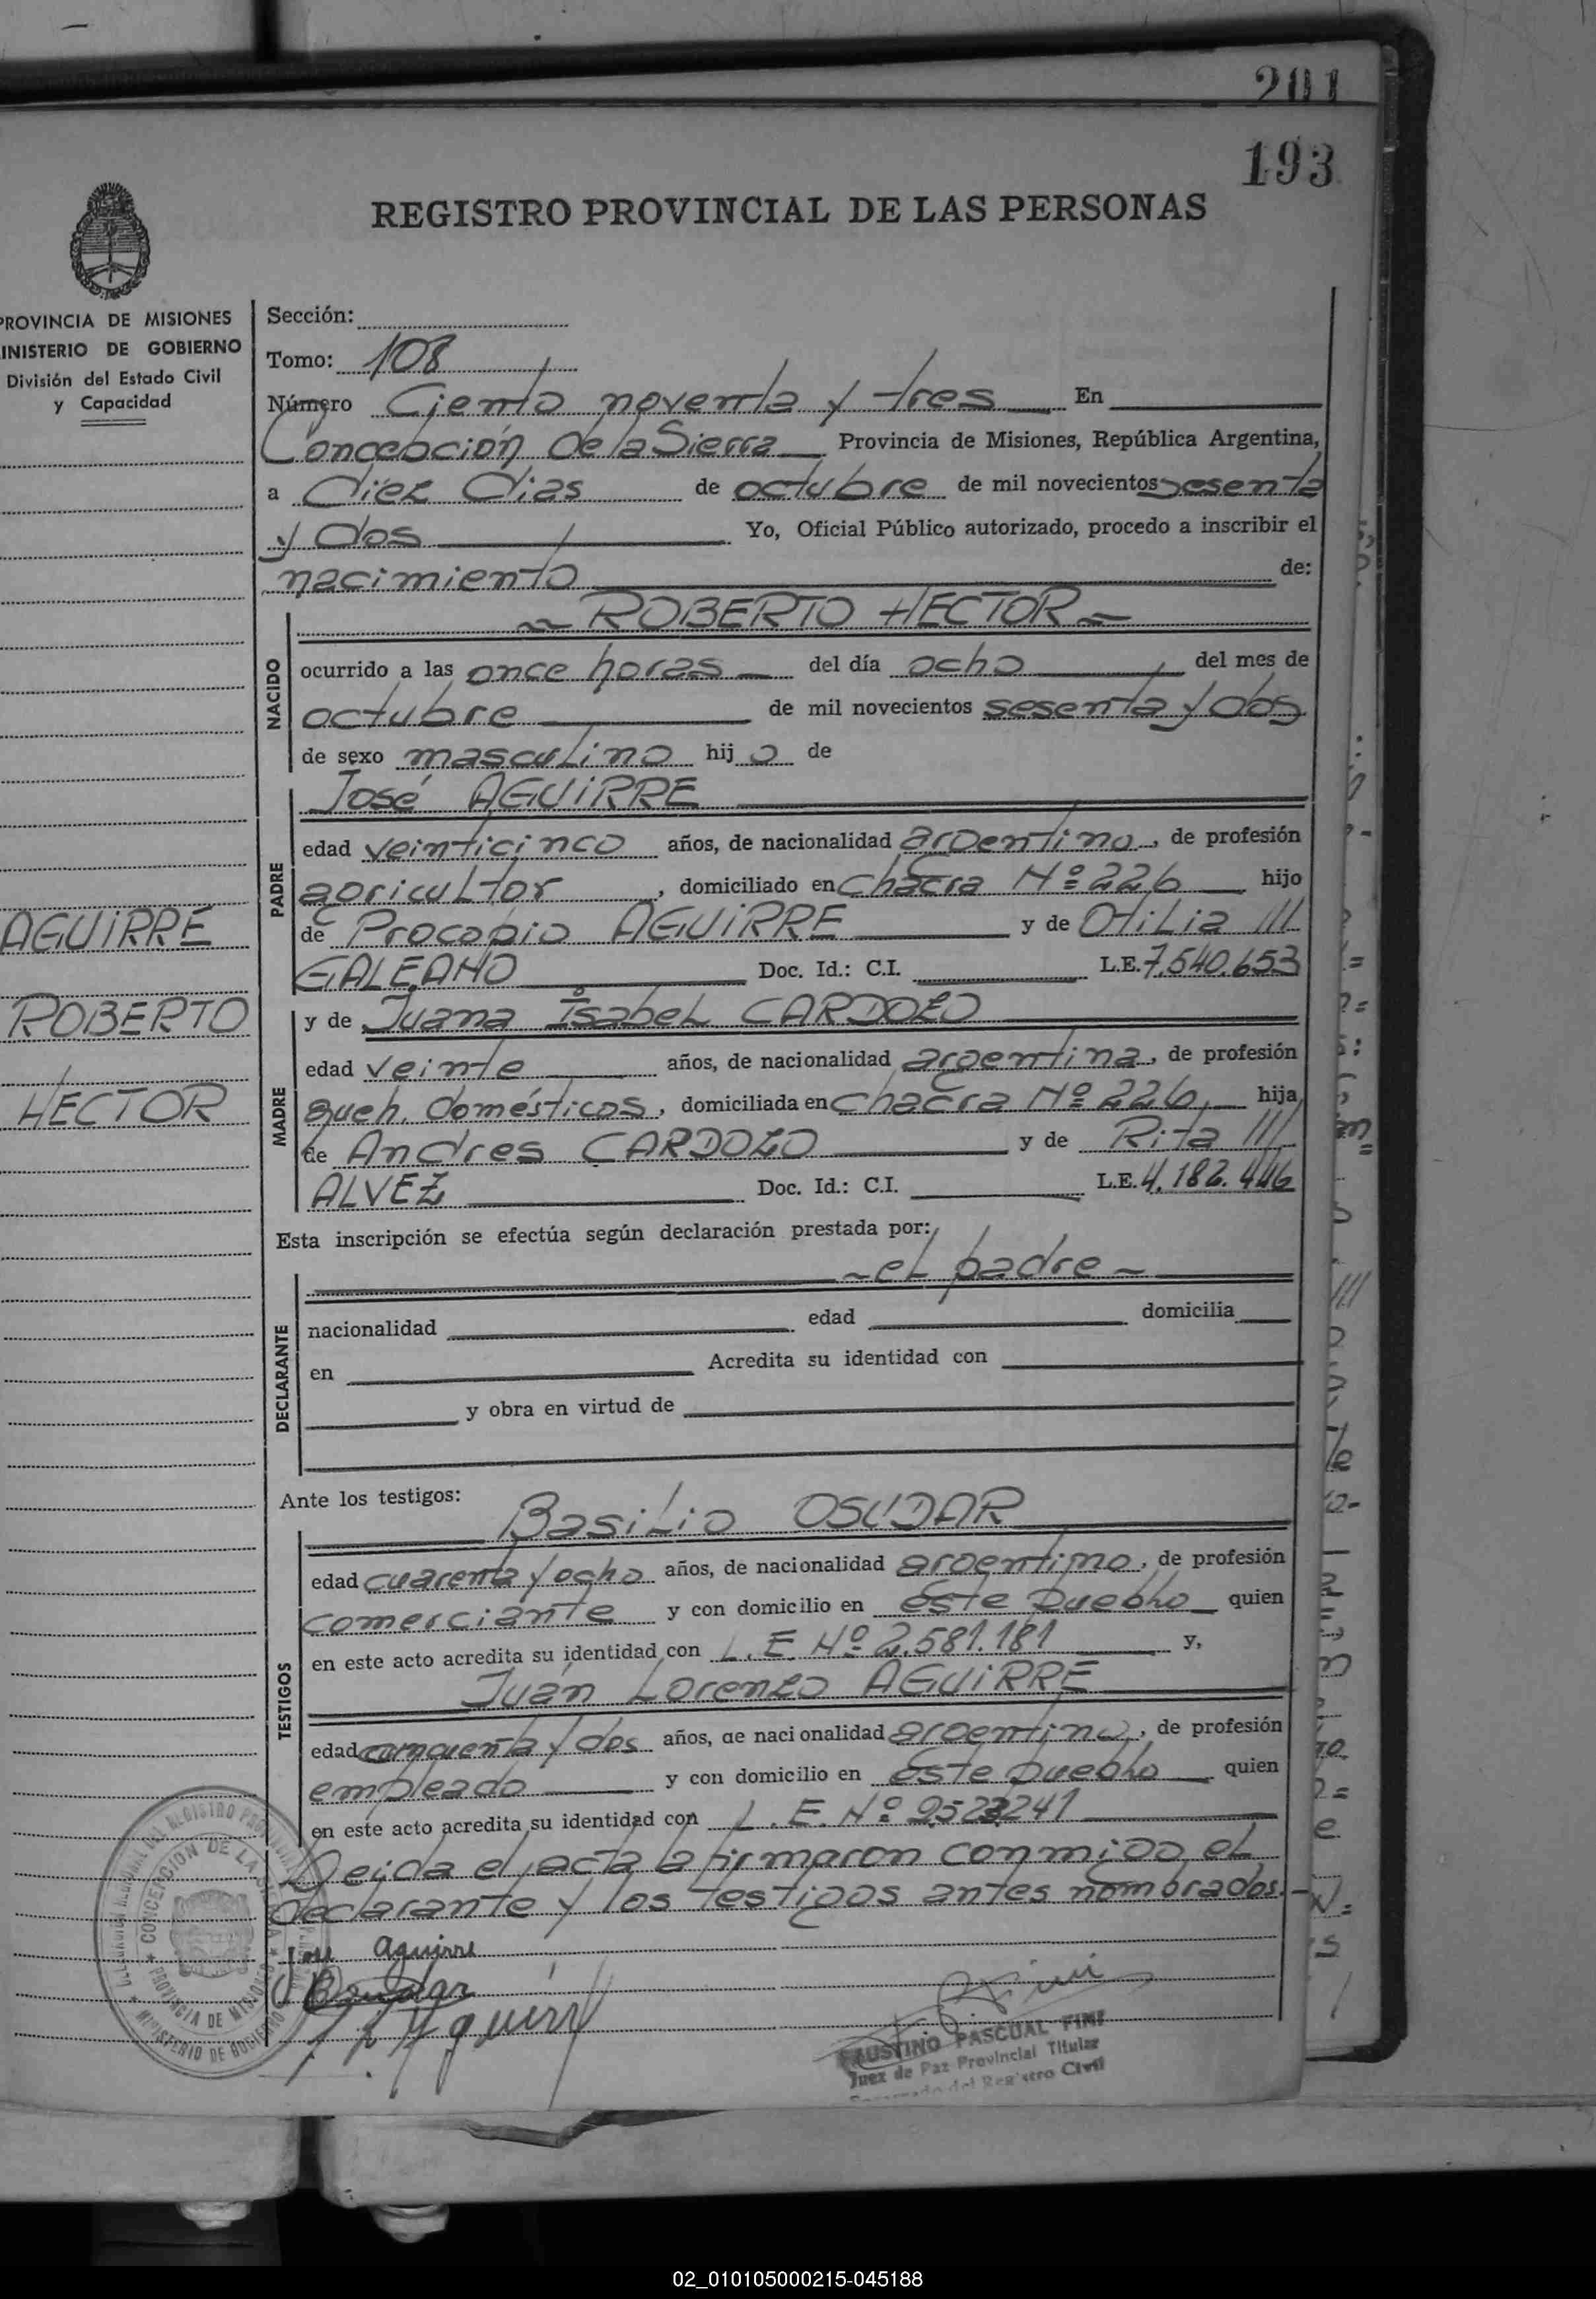 201
193
REGISTRO PROVINCIAL DE LAS PERSONAS
PROVINCIA DE MISIONES
MINISTERIO DE GOBIERNO
División del Estado Civil
y Capacidad
AGUIRRE
ROBERTO
HECTOR
Sección:
Tomo: 108
Número Ciento noventa y tres En
Concepción de la Sierra Provincia de Misiones, República Argentina,
a diez dias de octubre de mil novecientos sesenta
y dos Yo, Oficial Público autorizado, procedo a inscribir el
nacimiento de:
NACIDO
ROBERTO HECTOR
ocurrido a las once horas del día ocho del mes de
octubre de mil novecientos sesenta y dos
de sexo masculino hij o de
PADRE
José AGUIRRE
edad veinticinco años, de nacionalidad argentino, de profesión
agricultor, domiciliado en chacra Nº 226 hijo
de Procopio AGUIRRE y de Otilia ///
GALEANO Doc. Id.: C.I. L.E. 7.540.653
MADRE
y de Juana Isabel CARDOZO
edad veinte años, de nacionalidad argentina, de profesión
queh. domésticos, domiciliada en chacra Nº 226, hija
de Andres CARDOZO y de Rita ///
ALVEZ Doc. Id.: C.I. L.E. 4.182.446
Esta inscripción se efectúa según declaración prestada por:
DECLARANTE
- el padre -
nacionalidad edad domicilia
en Acredita su identidad con
y obra en virtud de
Ante los testigos:
TESTIGOS
Basilio OSUDAR
edad cuarenta y ocho años, de nacionalidad argentino, de profesión
comerciante y con domicilio en este pueblo quien
en este acto acredita su identidad con L.E. Nº 2.581.181 y,
Juan Lorenzo AGUIRRE
edad cincuenta y dos años, de nacionalidad argentino, de profesión
empleado y con domicilio en este pueblo quien
en este acto acredita su identidad con L.E. Nº
Leida el acta la firmaron conmigo el
declarante y los testigos antes nombrados.-
José Aguirre
Aguirre
FAUSTINO PASCUAL FINI
Juez de Paz Provincial Titular
del Registro Civil
CONCEPCION DE LA SIERRA
PROVINCIA DE MISIONES
MINISTERIO DE GOBIERNO
02_010105000215-045188